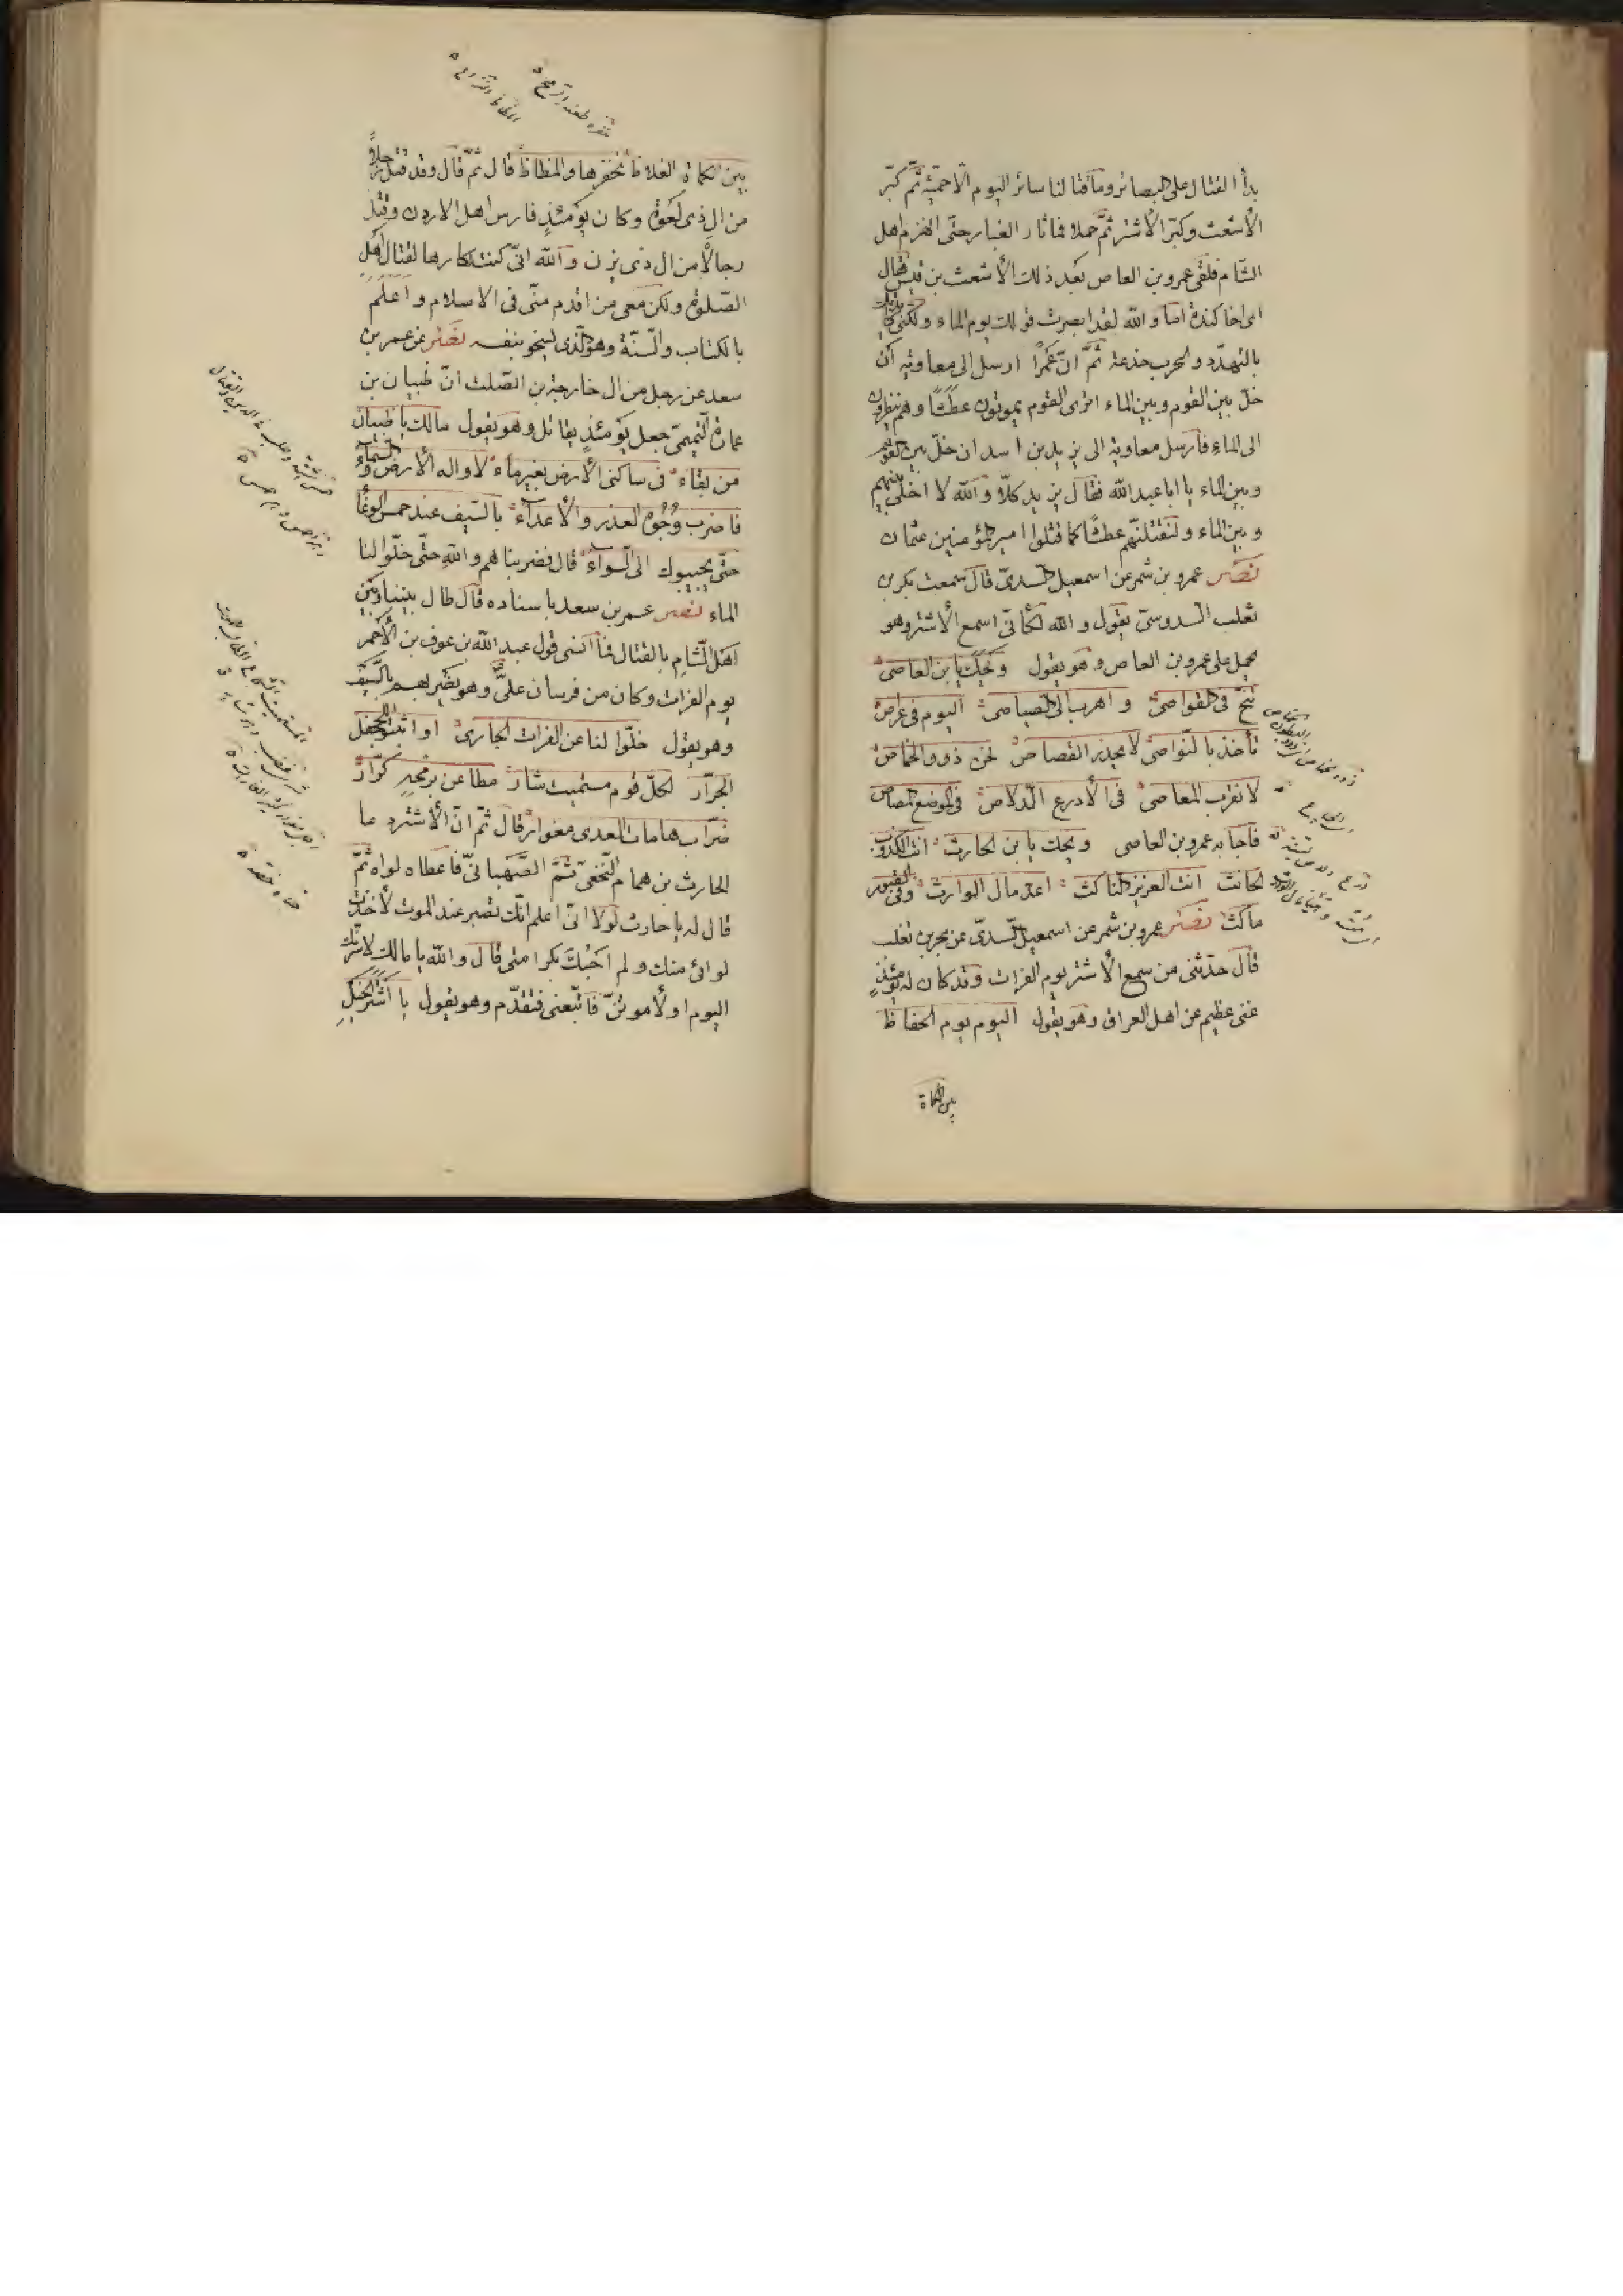 بدأ القتال على البصائر وما قتالنا سائر اليوم الا حميّة ثمّ كبّر
الأشعث وكبّر الأشتر ثمّ حملا فما ثار الغبار حتّى انهزم اهل
الشّام فلقى عمرو بن العاص بعد ذلك الأشعث بن قيس فقال
اى اخا كندة اما والله لقد ابصرت قولك يوم الماء ولكنّى كايدتك
بالتهدّد والحرب خدعة ثمّ انّ عمرًا ارسل الى معاوية أن
خلّ بين القوم وبين الماء اترى القوم يموتون عطشًا وهم ينظرون
الى الماء فأرسل معاوية الى يزيد بن اسد ان خلّ بين القوم
وبين الماء يا ابا عبد الله فقال يزيد كلّا والله لا اخلّى بينهم
وبين الماء ولنقتلنّهم عطشًا كما قتلوا امير المؤمنين عثمان
نصر عمرو بن شمر عن اسمعيل السدىّ قال سمعت بكر بن
تغلب السدوسىّ يقول والله لكأنّى اسمع الأشتر وهو
يحمل على عمرو بن العاص وهو يقول ويحك يا بن العاصى
تنحّ فى القواصى واهرب الى الصياصى اليوم فى عراص
نأخذ بالنّواصى لا يحذر القصاص نحن ذوو الخماص
لا نقرب المعاصى فى الأدرع الدّلاص فى الموضع المصاص
فاجابه عمرو بن العاصى ويحك يا بن الحارث انت الكذوب
الحانث انت العزيز الناكث اعدّ مال الوارث وفى القبور
ماكث نصر عمرو بن شمر عن اسمعيل السّدىّ عن بكر بن تغلب
قال حدّثنى من سمع الأشتر يوم الفرات وقد كان له يومئذٍ
غنى عظيم عن اهل العراق وهو يقول اليوم يوم الحفاظ
بين الكماة
بين الكماة الغلاظ نحفزها والمظاظ قال ثمّ قال وقد قتل رجلًا
من آل ذى لعوة وكان يومئذٍ فارس اهل الاردن وقتل
رجالًا من آل ذى يزن و الله انّى كنت كارها لقتال اهل
الصّلوة ولكن معى من اقدم منّى فى الاسلام واعلم
بالكتاب والسّنّة وهو الّذى يسخو بنفسه نصر عن عمر بن
سعد عن رجل من آل خارجة بن الصّلت انّ ظبيان بن
عمارة التّميمىّ جعل يومئذٍ يقاتل وهو يقول مالك يا ظبيان
من بقاء فى ساكنى الأرض بغير ماء لا واله الأرض والسّماء
فاضرب وجوه الغدر والأعداء بالسّيف عند حمس الوغا
حتّى يجيبوك الى السّواء قال فضربناهم والله حتّى خلّوا لنا
الماء نصر عمر بن سعد باسناده قال طال بيننا وبين
اهل الشّام بالقتال فما أنسى قول عبد الله بن عوف بن الأحمر
يوم الفرات وكان من فرسان علىّ وهو يضربهم بالسّيف
وهو يقول خلّوا لنا عن الفرات الجارى او اثبتوا لجحفل
الجرّار لكلّ قرم مستميت شار مطاعن برمحه كرّار
ضرّاب هامات العدى مغوار قال ثمّ انّ الأشتر دعا
الحارث بن همام النّخعىّ ثمّ الصّهبانىّ فاعطاه لواه ثمّ
قال له يا حارث لولا انّى اعلم انّك تصبر عند الموت لأخذت
لوائى منك ولم احبك بكرامتى قال والله يا مالك لاسرّنك
اليوم او لأموتنّ فاتّبعنى فتقدّم وهو يقول يا اشتر الخير